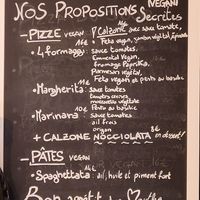 NOS PROPOSITIONS VEGAN!
Secrètes
- PIZZE VEGAN
CALZONE avec sauce tomate,
16€
Feta vegan, jambon végétal, épinards
- 4 formaggi: sauce tomates
Emmental Vegan
fromage Paprika,
Parmesan végétal,
Feta vegan et pesto au basilic
- Margherita: sauce tomates
tomates cerises
mozzarella végétale
Pesto au basilic
- Marinara: sauce tomates
ail frais
origan
+ CALZONE NOCCIOLATA 8€ en dessert!
- PÂTES VEGAN
- Spaghettata: ail, huile et piment fort
Bon appétit